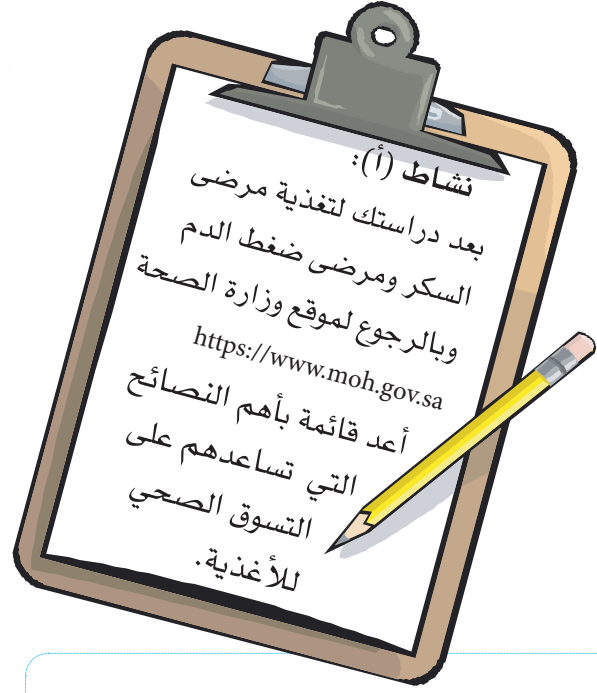 نشاط (أ):
بعد دراستك لتغذية مرضى
السكر ومرضى ضغط الدم
وبالرجوع لموقع وزارة الصحة
https://www.moh.gov.sa
أعد قائمة بأهم النصائح
التي تساعدهم على
التسوق الصحي
للأغذية.